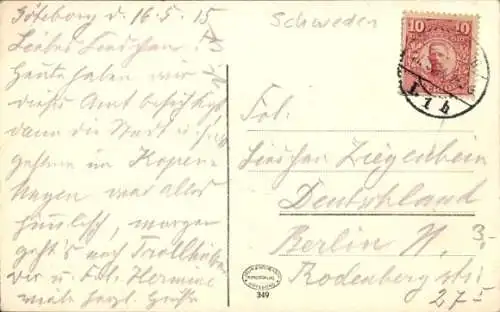 Göteborg d. 16.5.15
Liebes Lieschen!
Heute haben wir
dieses Amt besichtigt
dann die Stadt u.
gestern in Kopen-
hagen war alles
morgen
geht's nach Trollhättan
Dir u. Frl. Hermine
viele herzl. Grüße
Schweden
10 10
Frl.
Lieschen Ziegenbein
Deutschland
Berlin N.
Rodenberg str.
27 I
3,-
349